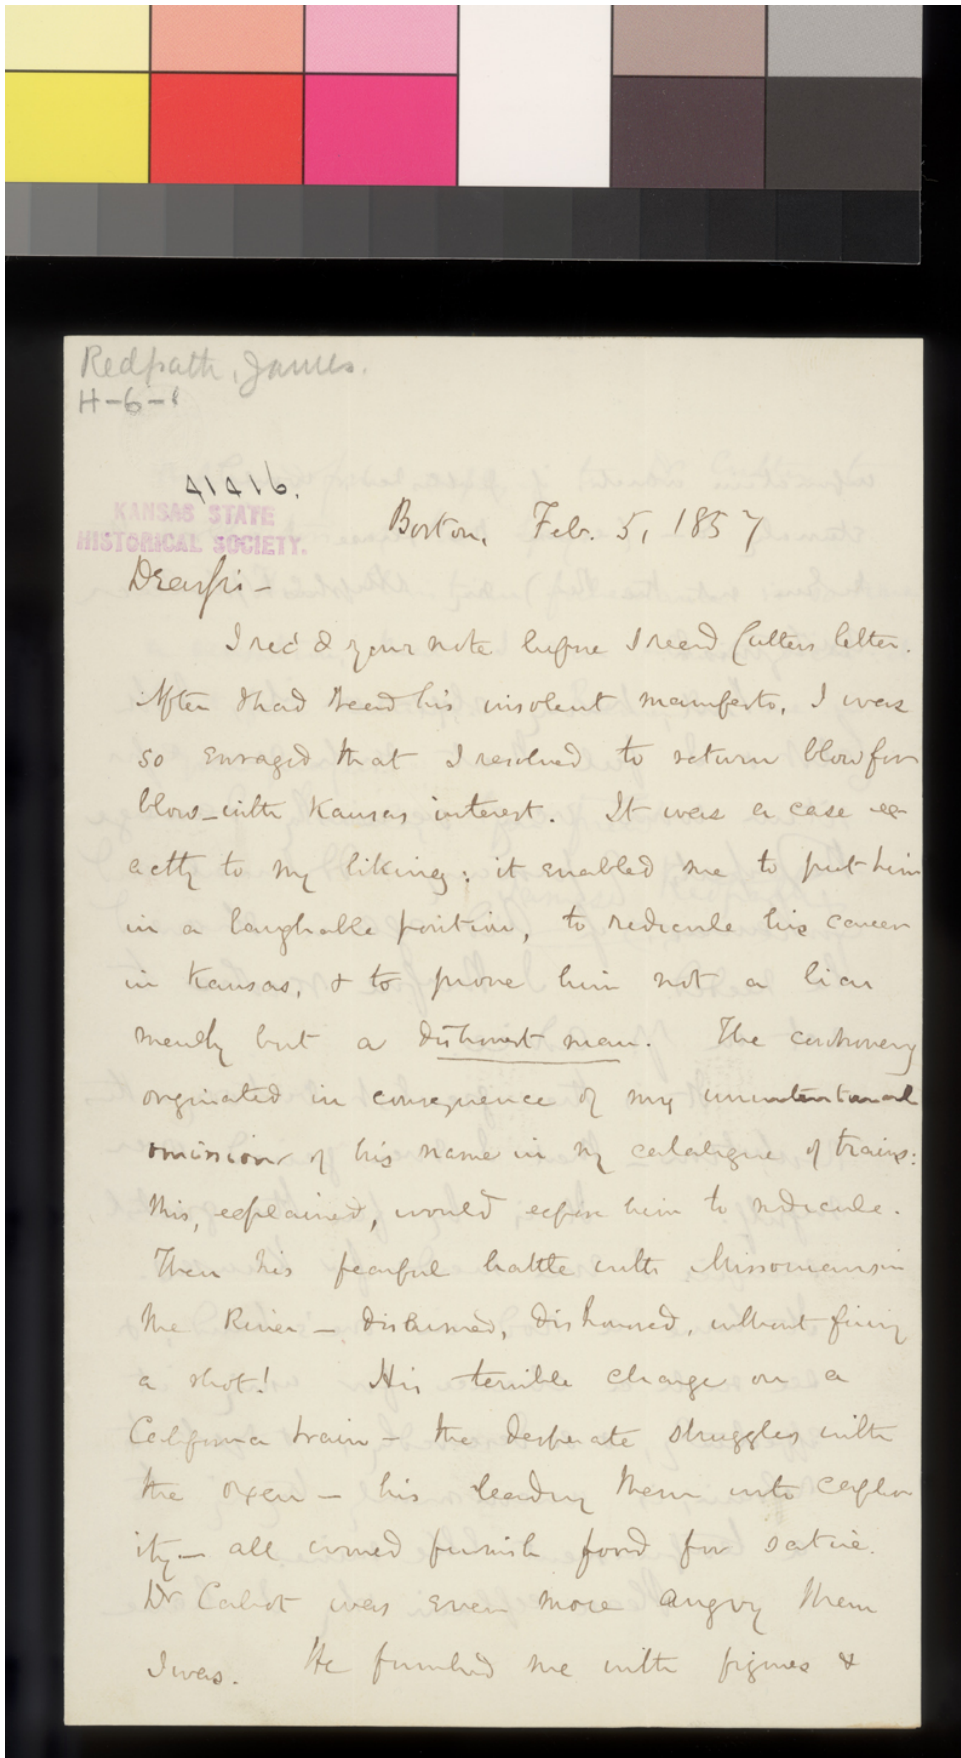 Redpath, James.
H-6-1
41416.
KANSAS STATE
HISTORICAL SOCIETY.
Boston, Feb. 5, 1857
Dear Sir —
I rec'd your note before I read Cutters letter.
After I had read his insolent manifesto, I was
so enraged that I resolved to return blow for
blow - with Kansas interest. It was a case ex-
actly to my liking; it enabled me to put him
in a laughable position, to redicule his career
in Kansas, & to prove him not a liar
merely but a dishonest man. The controversy
orginated in consequence of my unintentional
omission of his name in my catalogue of trains:
this, explained, would expose him to ridicule.
Then his fearful battle with Missourians in
the River — disarmed, dishonored, without firing
a shot! His terrible charge on a
California train — the desperate struggles with
the oxen — his leading them into captiv
ity — all would furnish food for satire.
Dr Cabot was even more angry than
I was. He furnished me with figures &